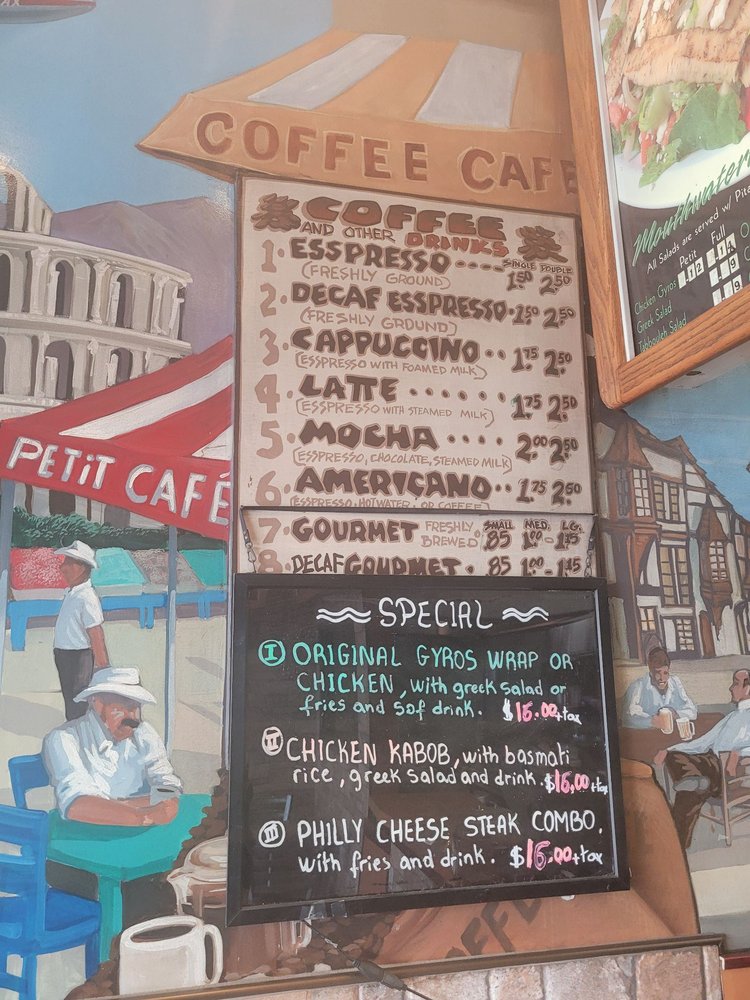 COFFEE CAFE
COFFEE
AND OTHER DRINKS
SINGLE DOUBLE
1. ESSPRESSO ---- 1.50 2.50
(FRESHLY GROUND)
2. DECAF ESSPRESSO. 1.50 2.50
(FRESHLY GROUND)
3. CAPPUCCINO .. 1.75 2.50
(ESPRESSO WITH FOAMED MILK)
4. LATTE ...... 1.75 2.50
(ESSPRESSO WITH STEAMED MILK)
5. MOCHA .... 2.00 2.50
(ESSPRESSO, CHOCOLATE, STEAMED MILK)
6. AMERICANO .. 1.75 2.50
(ESSPRESSO, HOT WATER, OR COFFEE)
SMALL MED. LG.
7. GOURMET FRESHLY BREWED .85 1.00 - 1.15
8. DECAF GOURMET . .85 1.00 - 1.15
PETIT CAFÉ
SPECIAL
I ORIGINAL GYROS WRAP OR
CHICKEN, with greek salad or
fries and sof drink. $16.00+tax
II CHICKEN KABOB, with basmati
rice, greek salad and drink. $16.00+tax
III PHILLY CHEESE STEAK COMBO.
with fries and drink. $16.00+tax
Mouthwater
All Salads are served w/ Pit
Petit Full
Chicken Gyros
Greek Salad
Tabbouleh Salad